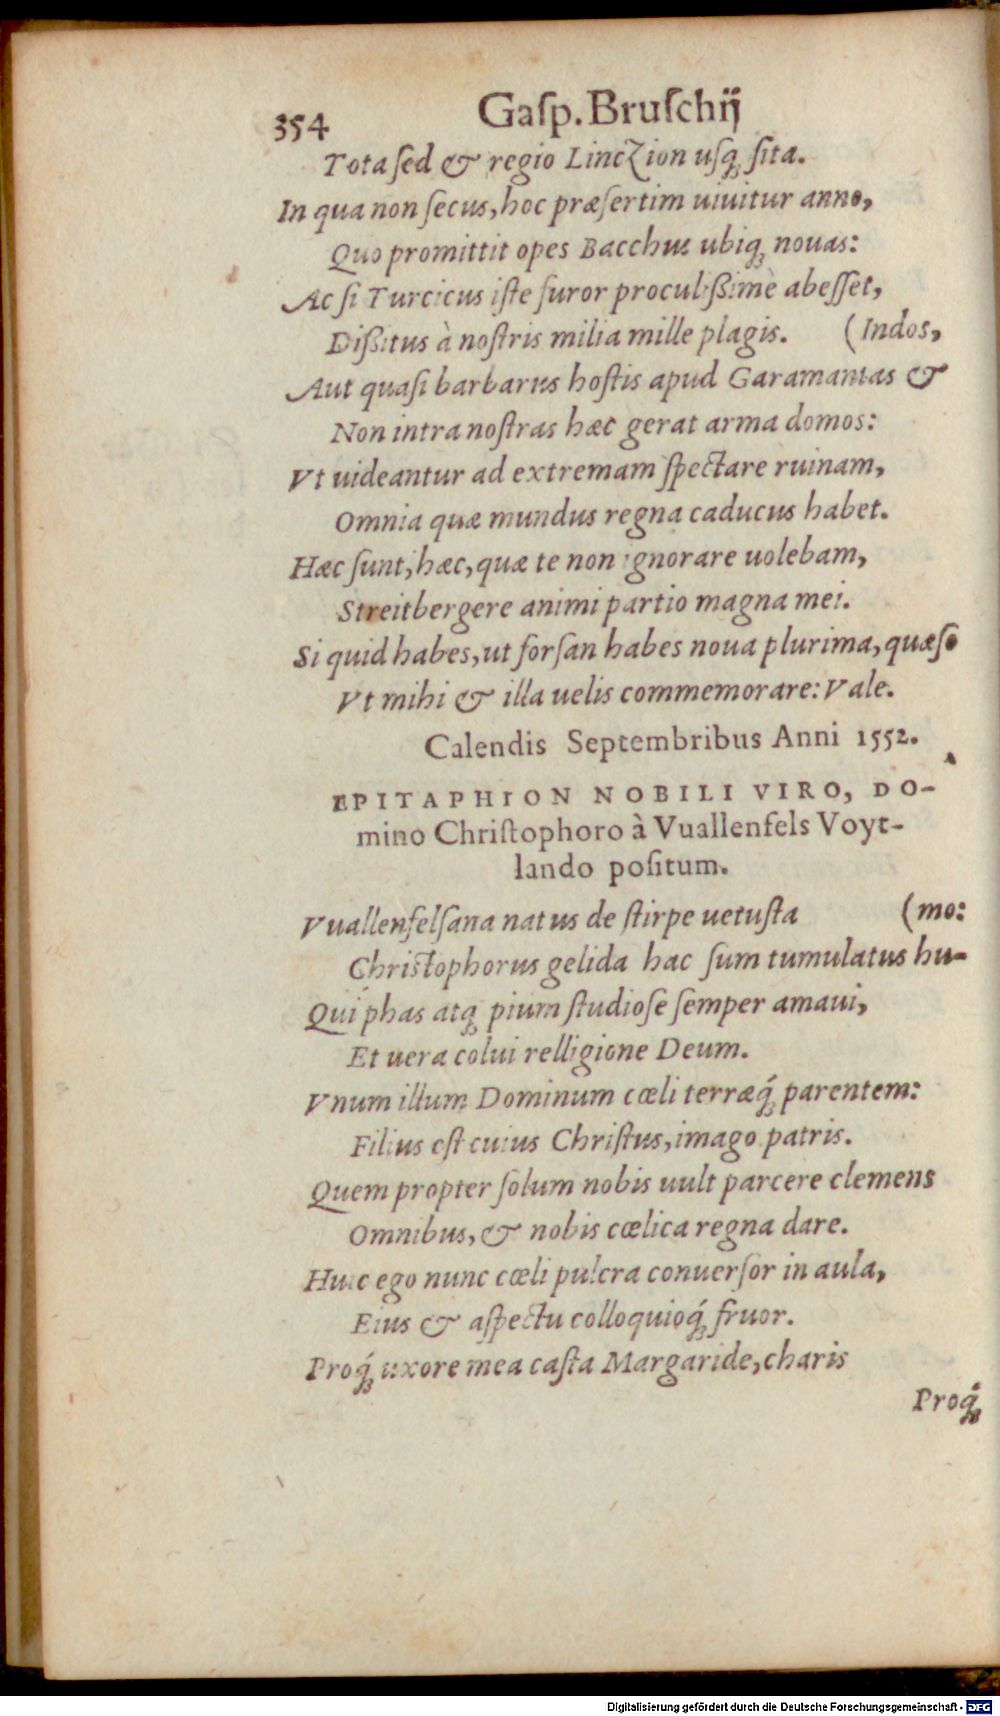 354 Gaſp. Bruſchij
Tota ſed & regio Linczion uſq; ſita.
In qua non ſecus, hoc præſertim uiuitur anno,
Quo promittit opes Bacchus ubiq; nouas:
Ac ſi Turcicus iſte furor proculißimè abeſſet,
Dißitus à noſtris milia mille plagis. (Indos,
Aut quaſi barbarus hoſtis apud Garamantas &
Non intra noſtras hæc gerat arma domos:
Vt uideantur ad extremam ſpectare ruinam,
Omnia quæ mundus regna caducus habet.
Hæc ſunt, hæc, quæ te non ignorare uolebam,
Streitbergere animi partio magna mei.
Si quid habes, ut forſan habes noua plurima, quæſo
Vt mihi & illa uelis commemorare: Vale.
Calendis Septembribus Anni 1552.
EPITAPHION NOBILI VIRO, DO-
mino Chriſtophoro à Vuallenfels Voyt-
lando poſitum.
Vuallenfelſana natus de ſtirpe uetuſta (mo:
Chriſtophorus gelida hac ſum tumulatus hu-
Qui phas atq; pium ſtudioſe ſemper amaui,
Et uera colui relligione Deum.
Vnum illum Dominum cœli terræq́; parentem:
Filius eſt cuius Chriſtus, imago patris.
Quem propter ſolum nobis uult parcere clemens
Omnibus, & nobis cœlica regna dare.
Huic ego nunc cœli pulcra conuerſor in aula,
Eius & aſpectu colloquioq́; fruor.
Proq́; uxore mea caſta Margaride, charis
Proq́;
Digitalisierung gefördert durch die Deutsche Forschungsgemeinschaft - DFG